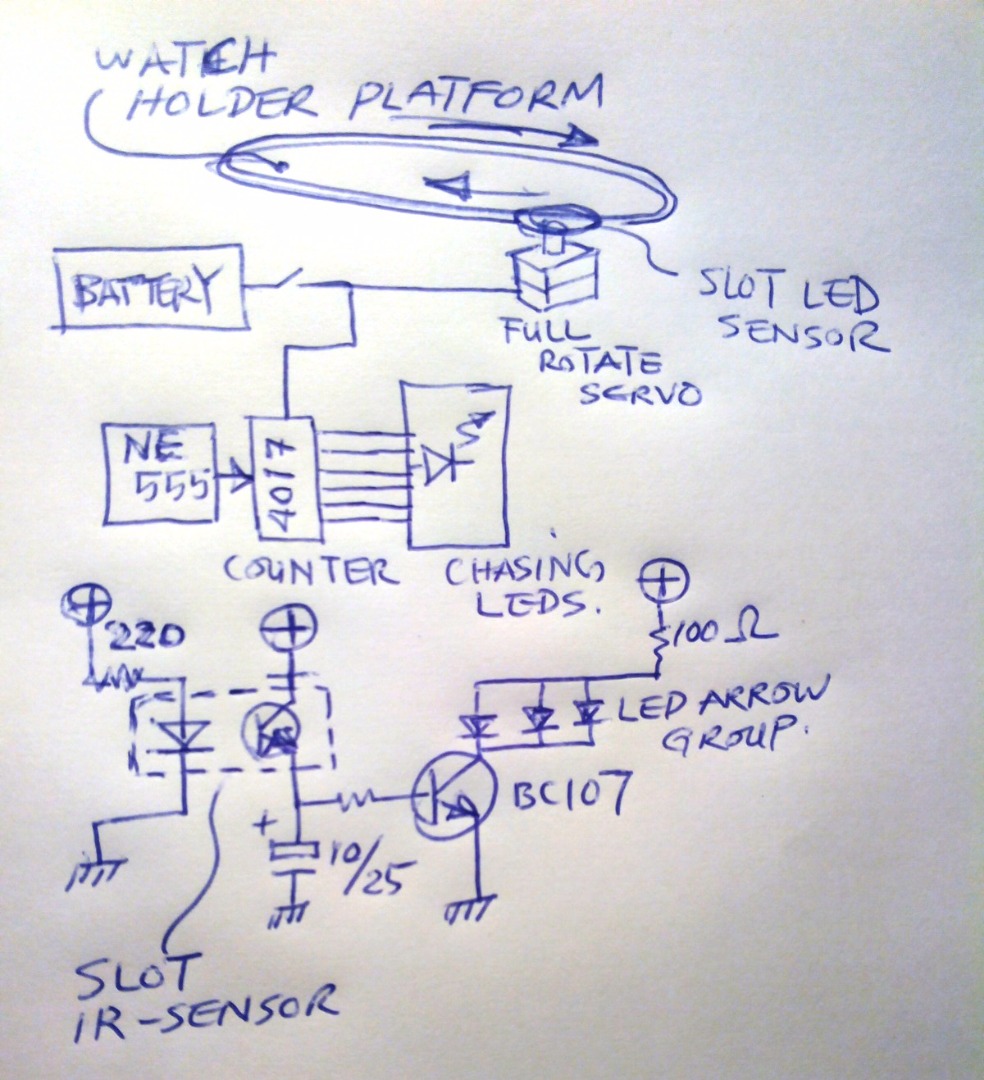 WATCH
HOLDER PLATFORM
BATTERY
SLOT LED
SENSOR
FULL
ROTATE
SERVO
NE
555
4017
COUNTER
CHASING
LEDS.
+
220
+
+
100 Ω
LED ARROW
GROUP.
BC107
+
10/25
SLOT
IR-SENSOR